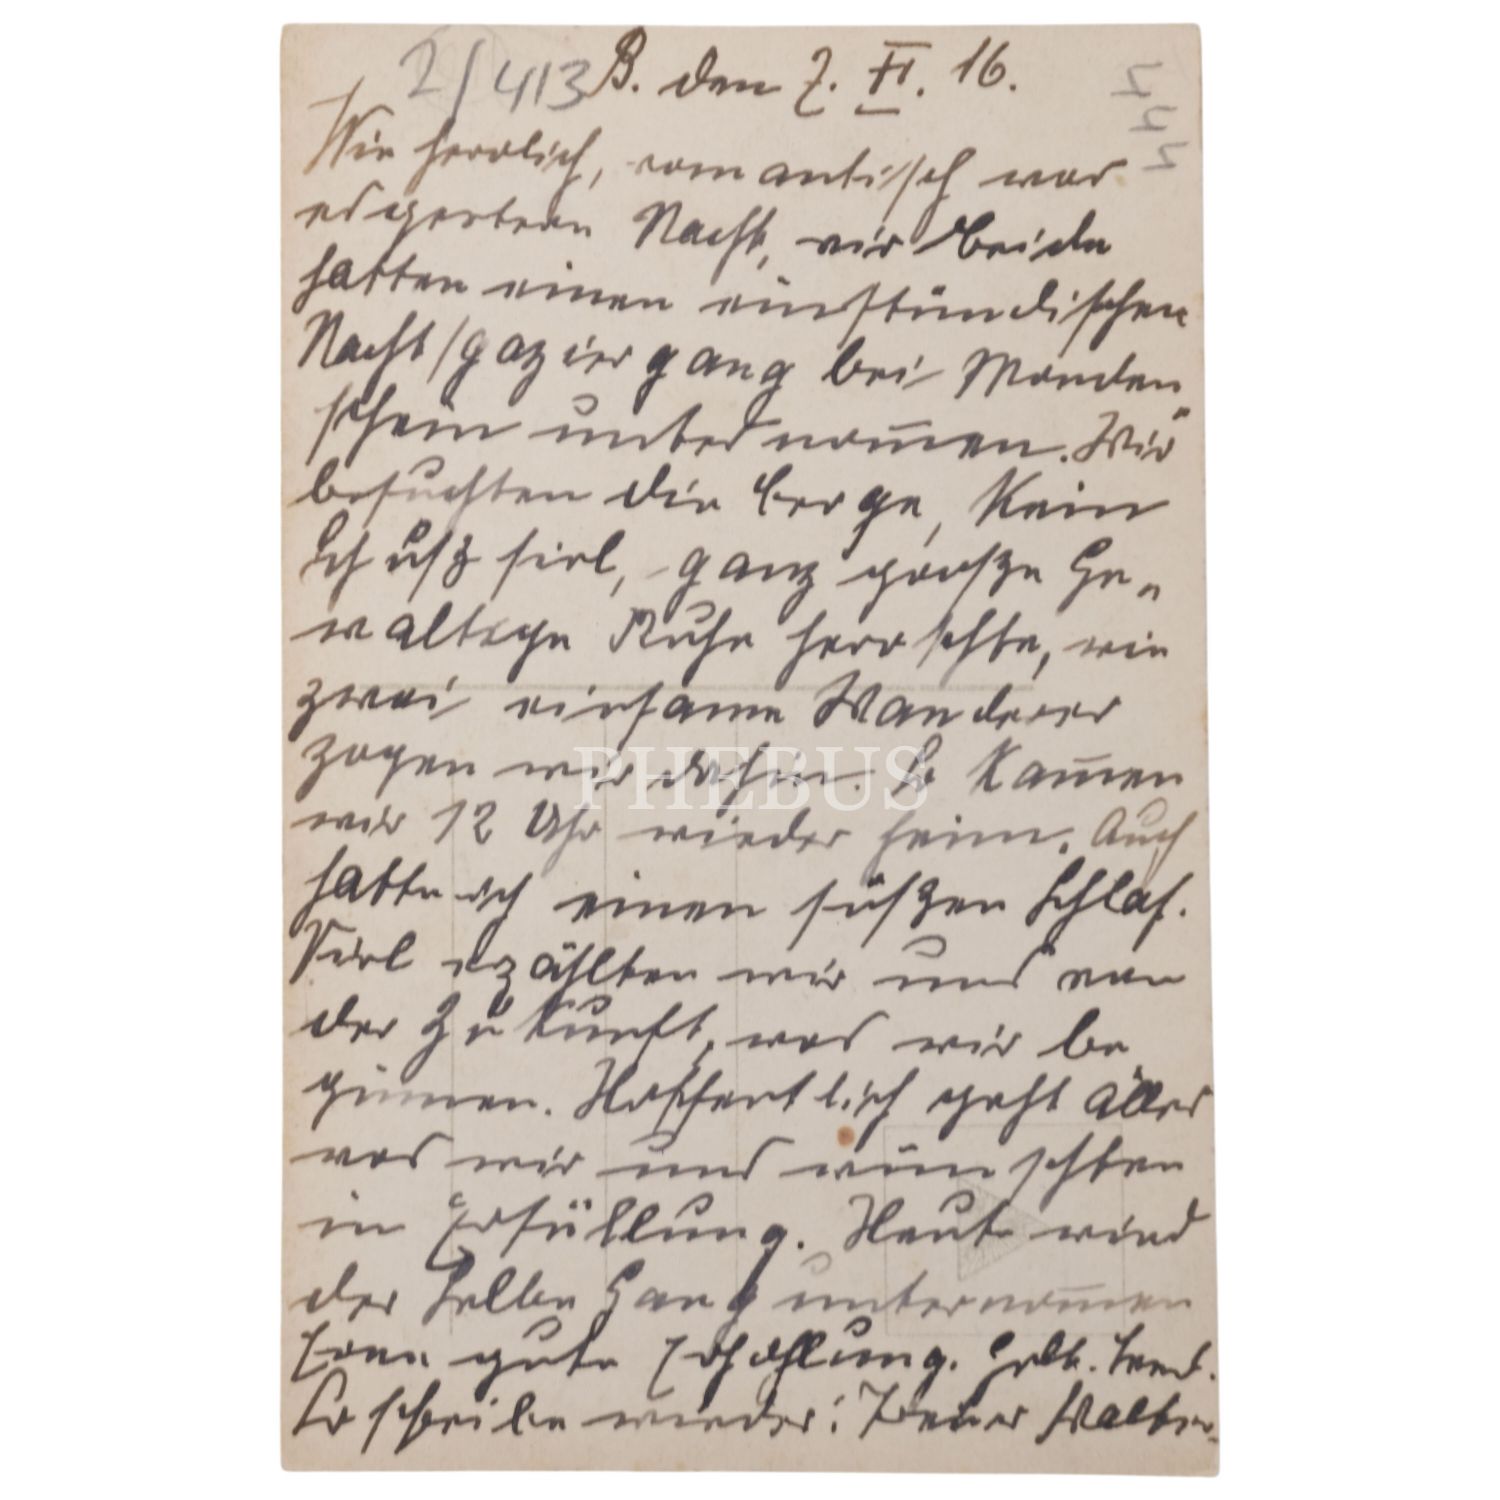 2/413 B. den 7. VI. 16.
Wie herrlich, romantisch war
es gestern Nacht, wir beide
hatten einen einstündischen
Nachtspaziergang bei Monden
schein unternom̅en. Wir
besuchten die Berge, Kein
Schuß fiel, ganz große Ge-
waltige Ruhe herrschte, wie
zwei einsame Wanderer
zogen wir dahin. So kam̅en
wir 12 Uhr wieder heim. Auch
hatte ich einen süßen Schlaf.
Viel erzählten wir uns von
der Zukunft, was wir be
ginnen. Hoffentlich geht alles
was wir uns wünschten
in Erfüllung. Heute wird
der selbe Gang unternom̅en
Eine gute Erholung.
So schreibe wieder! Walter
PHEBUS